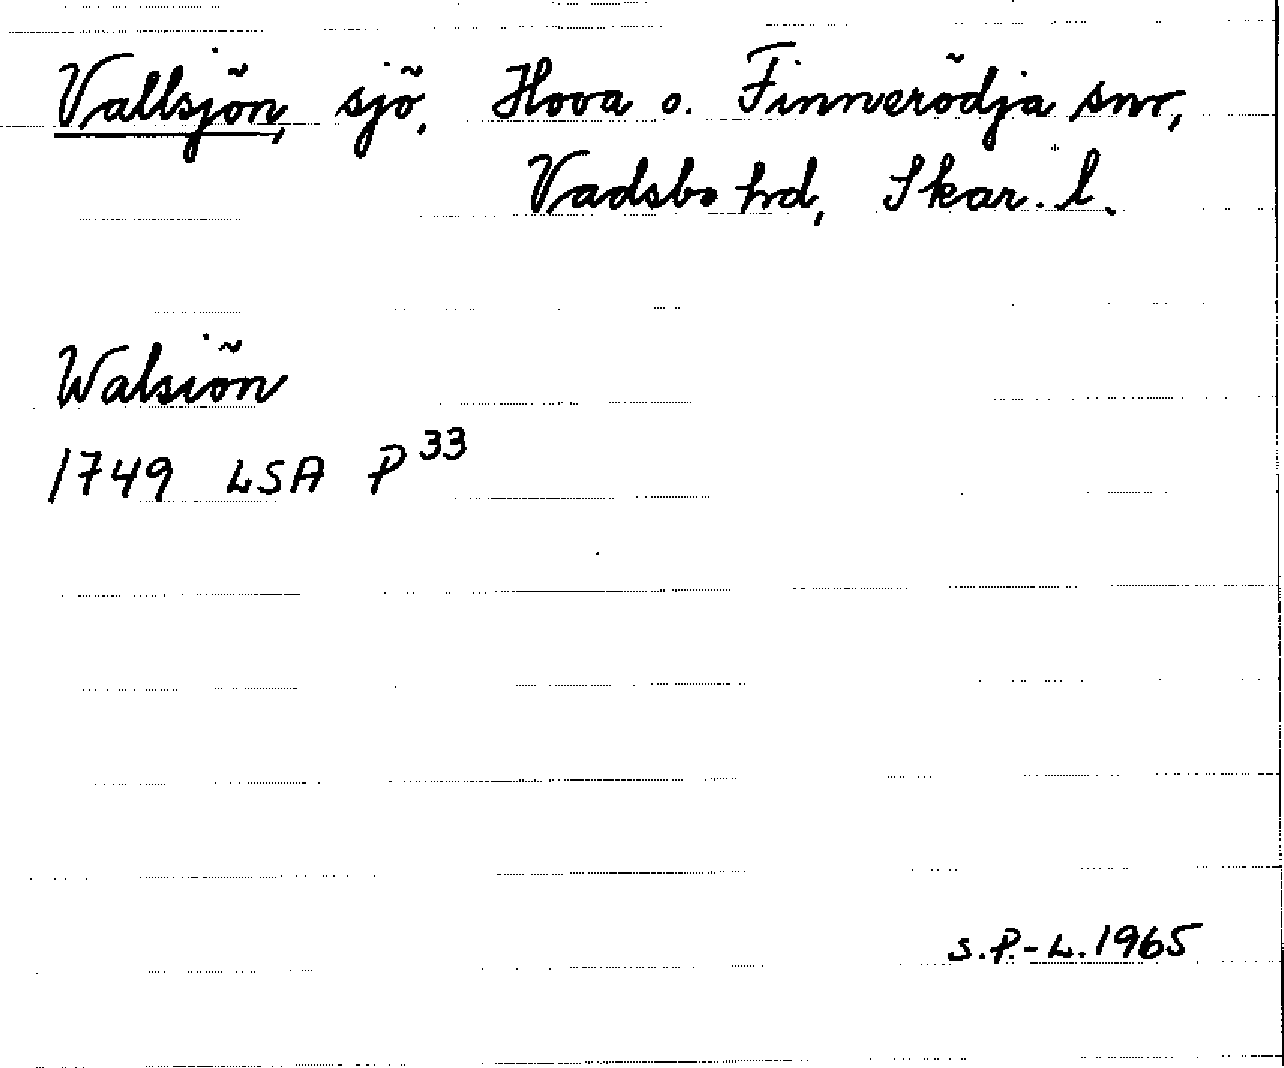 Vallsjön, sjö, Hova o. Finnerödja snr,
Vadsbo hd, Skar. l.
Walsiön
1749 LSA P 33
S.P.-L. 1965